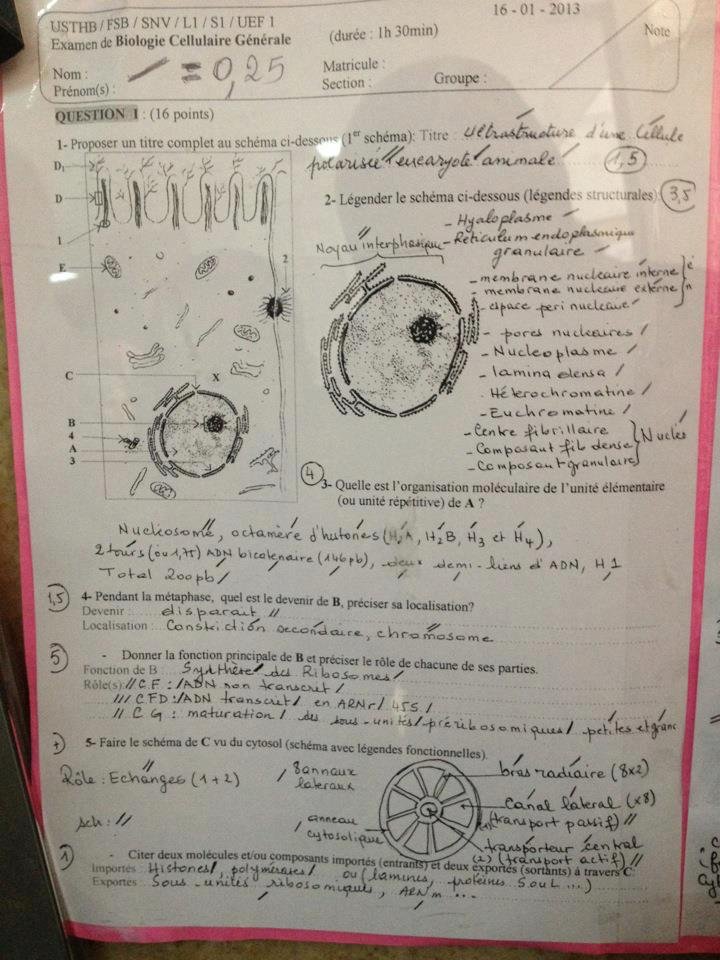 16 - 01 - 2013
USTHB / FSB / SNV / L1 / S1 / UEF 1
Examen de Biologie Cellulaire Générale
(durée : 1h 30min)
Note
Nom :
Prénom(s) :
= 0,25
Matricule :
Section :
Groupe :
QUESTION I : (16 points)
1- Proposer un titre complet au schéma ci-dessous (1er schéma): Titre : Ultrastructure d'une Cellule
polarisée eucaryote animale
1,5
D1
D
1
E
2
C
X
B
4
A
3
2- Légender le schéma ci-dessous (légendes structurales)
3,5
Noyau interphasique
- Hyaloplasme
- Réticulum endoplasmique
granulaire
- membrane nucléaire interne
- membrane nucléaire externe
- espace peri nucléaire
- pores nucléaires
- Nucleoplasme
- lamina densa
- Hétérochromatine
- Euchromatine
- Centre fibrillaire
- Composant fib dense
- Composant granulaire
Nucleé
4
3- Quelle est l'organisation moléculaire de l'unité élémentaire
(ou unité répétitive) de A ?
Nucléosome, octamère d'histones (H2A, H2B, H3 et H4),
2 tours (ou 1,75) ADN bicatenaire (146pb), deux demi-liens d'ADN, H1
Total 200pb
1,5
4- Pendant la métaphase, quel est le devenir de B, préciser sa localisation?
Devenir : disparait
Localisation : Constriction secondaire, chromosome
5
- Donner la fonction principale de B et préciser le rôle de chacune de ses parties.
Fonction de B : Synthèse des Ribosomes
Rôle(s): C.F : ADN non transcrit
CFD : ADN transcrit en ARNr 45S
C G : maturation des sous-unités préribosomiques petites et grand
5- Faire le schéma de C vu du cytosol (schéma avec légendes fonctionnelles).
Rôle : Echanges (1+2)
sch :
8 annaux
lateraux
anneau
cytosolique
bras radiaire (8x2)
canal latéral (x8)
(transport passif)
transporteur central
(2) (transport actif)
1
- Citer deux molécules et/ou composants importés (entrants) et deux exportés (sortants) à travers C
Importés : Histones, polymérases ou (lamines, protéines SouL ...)
Exportés : Sous-unités ribosomiques, ARNm ...